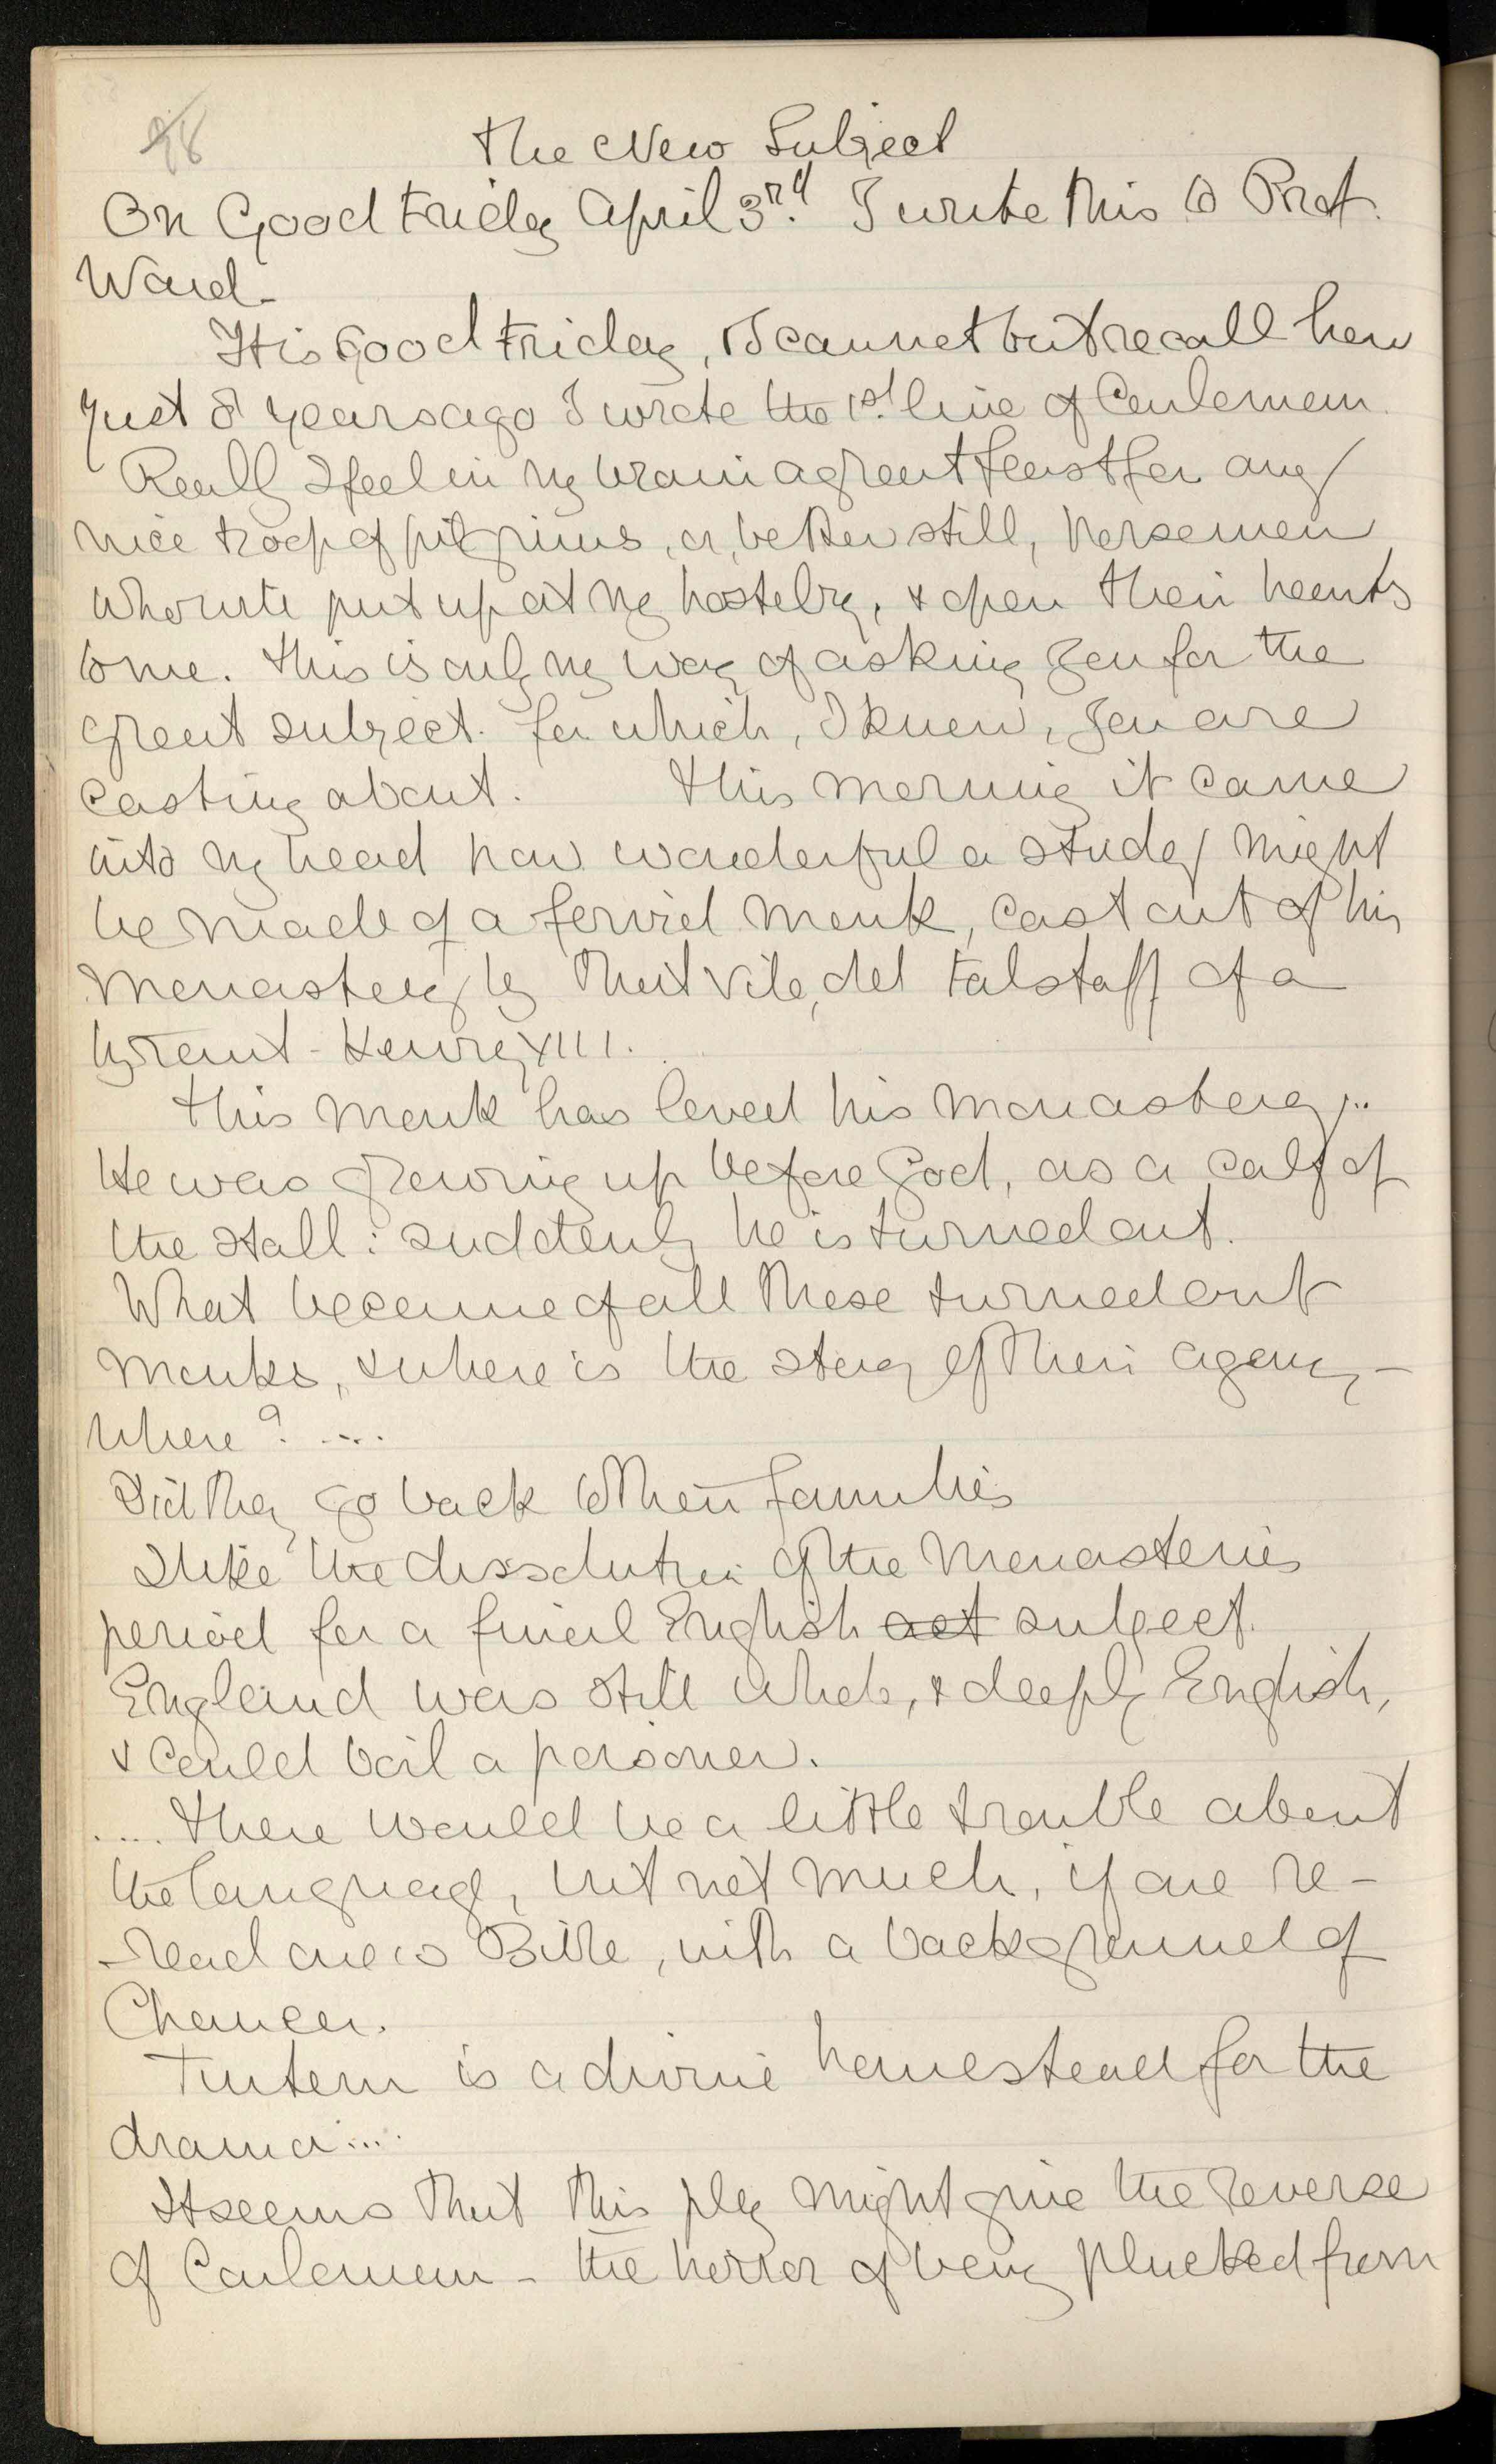 98
The New Subject
On Good Friday April 3rd. I write this to Prof.
Ward -
It is Good Friday, & I cannot but recall how
just 8 years ago I wrote the 1st. line of Carloman.
Really I feel in my brain a great feast for any
nice troop of pilgrims, or, better still, horsemen
who will put up at my hostelry, & open their hearts
to me. This is only my way of asking you for the
great subject. for which, I know, you are
casting about. This morning it came
into my head how wonderful a study might
be made of a fervid monk, cast out of his
monastery by that vile, old Falstaff of a
tyrant - Henry XIII.
This monk has loved his monastery...
He was growing up before God, as a calf of
the stall: suddenly he is turned out.
What became of all these turned out
monks, & where is the story of their agony -
where? ....
Did they go back to their families
I like the dissolution of the monasteries
period for a final English act subject.
England was still whole, & deeply English,
& could boil a poisoner.
.... There would be a little trouble about
the language, but not much, if one re-
-read one's Bible, with a background of
Chaucer.
Tintern is a divine homestead for the
drama ....
It seems that this play might give the reverse
of Carloman - the horror of being plucked from